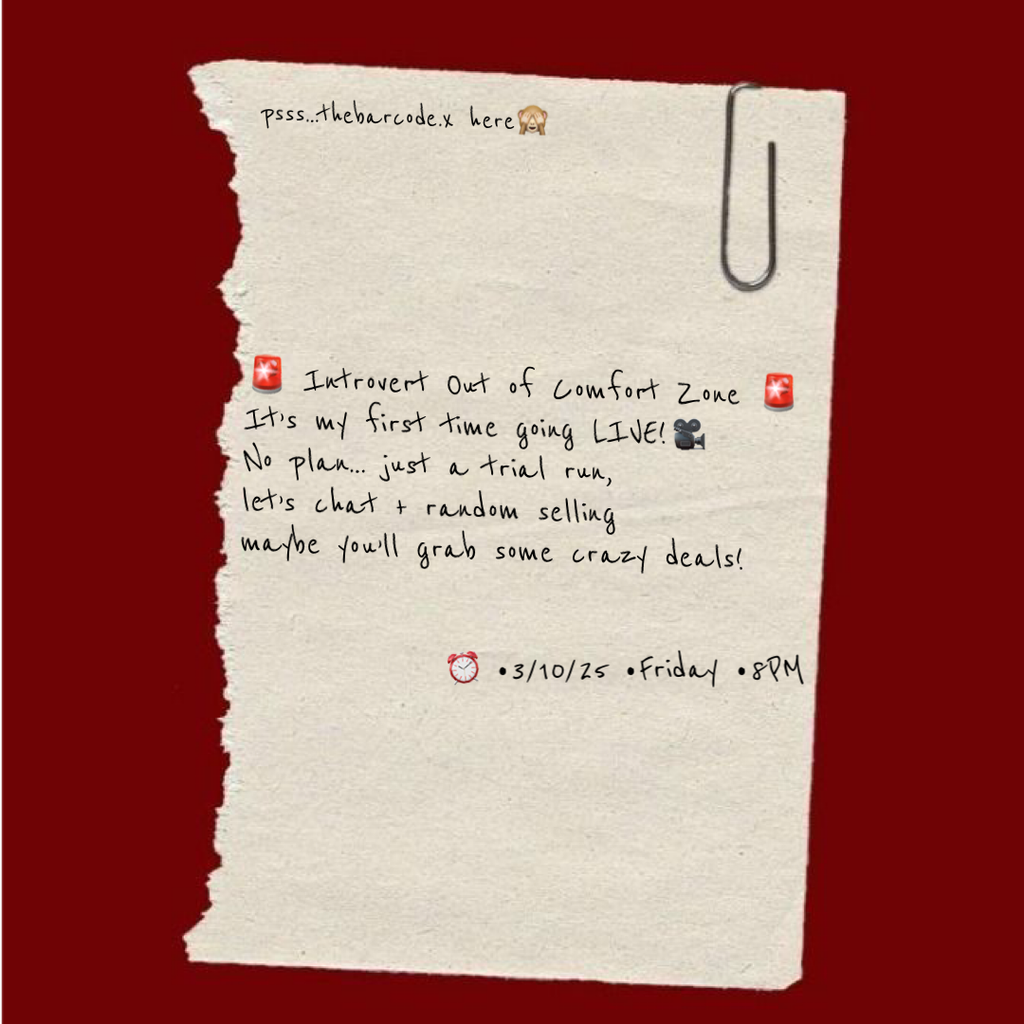 psss...thebarcode.x here🙈
🚨 Introvert Out of Comfort Zone 🚨
It's my first time going LIVE!🎥
No plan... just a trial run,
let's chat + random selling
maybe you'll grab some crazy deals!
⏰ •3/10/25 •Friday •8PM